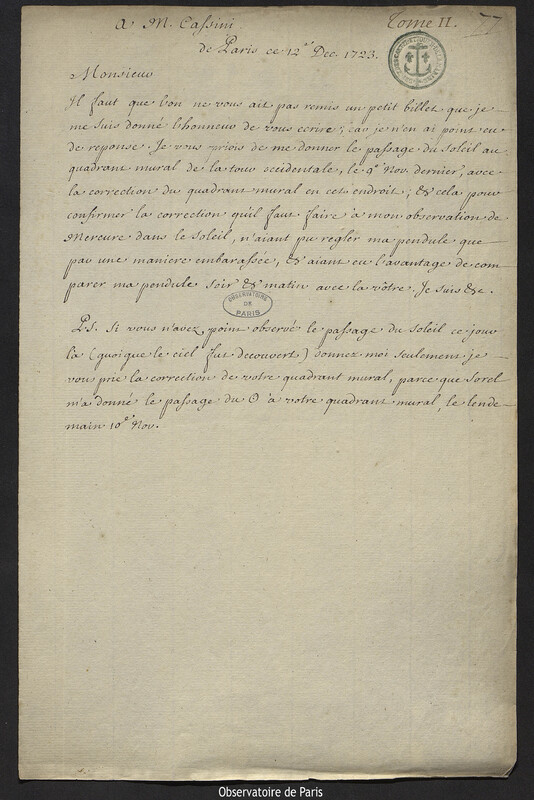 a M. Cassini
Tome II.
77
de Paris ce 12.e Dec. 1723.
Monsieur
Il faut que l'on ne vous ait pas remis un petit billet que je
me suis donné l'honneur de vous ecrire; car je n'en ai point eu
de reponse. Je vous priois de me donner le passage du Soleil au
quadrant mural de la tour occidentale, le 9.e Nov. dernier, avec
la correction du quadrant mural en cet endroit; & cela pour
confirmer la correction qu'il faut faire à mon observation de
Mercure dans le Soleil, n'aiant pu régler ma pendule que
par une maniere embarassée, & aiant eu l'avantage de com
parer ma pendule soir & matin avec la vôtre. Je suis &c.
OBSERVATOIRE
DE
PARIS
PS. Si vous n'avez point observé le passage du Soleil ce jour
là (quoique le ciel fut decouvert) donnez moi seulement je
vou prie la correction de votre quadrant mural, parce que Sorel
m'a donné le passage du ⊙ à votre quadrant mural, le lende
main 10.e Nov.
Observatoire de Paris